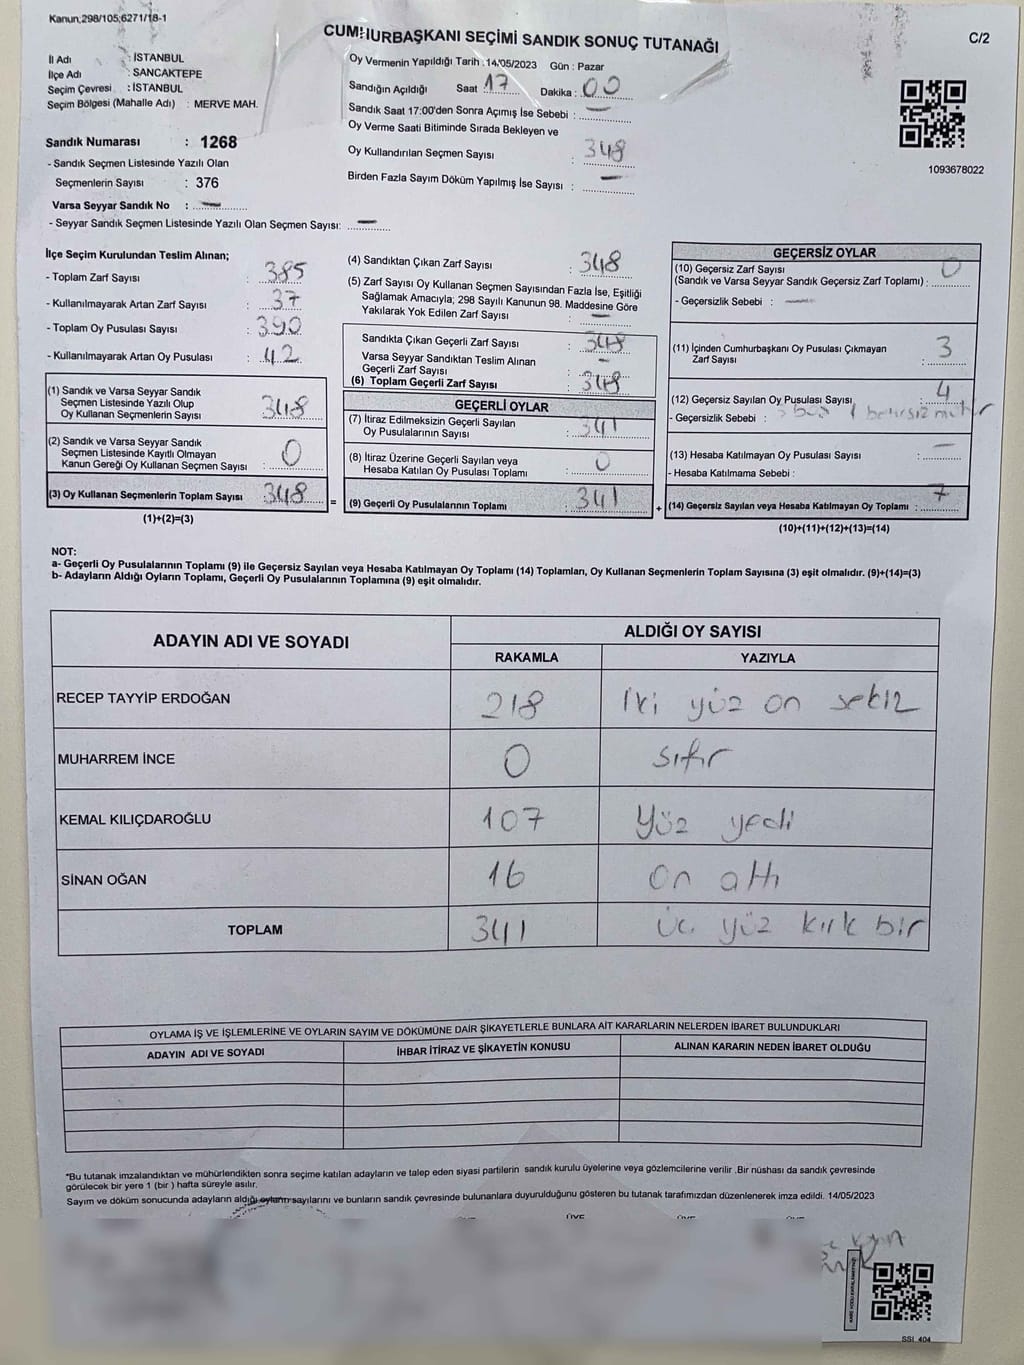 Kanun;298/105;6271/18-1
CUMHURBAŞKANI SEÇİMİ SANDIK SONUÇ TUTANAĞI
C/2
İl Adı : İSTANBUL
İlçe Adı : SANCAKTEPE
Seçim Çevresi : İSTANBUL
Seçim Bölgesi (Mahalle Adı) : MERVE MAH.
Sandık Numarası : 1268
- Sandık Seçmen Listesinde Yazılı Olan
Seçmenlerin Sayısı : 376
Varsa Seyyar Sandık No : —
- Seyyar Sandık Seçmen Listesinde Yazılı Olan Seçmen Sayısı: —
Oy Vermenin Yapıldığı Tarih : 14/05/2023 Gün : Pazar
Sandığın Açıldığı Saat 17 Dakika : 00
Sandık Saat 17:00'den Sonra Açımış İse Sebebi : —
Oy Verme Saati Bitiminde Sırada Bekleyen ve
Oy Kullandırılan Seçmen Sayısı : 348
Birden Fazla Sayım Döküm Yapılmış İse Sayısı : —
1093678022
İlçe Seçim Kurulundan Teslim Alınan;
- Toplam Zarf Sayısı : 385
- Kullanılmayarak Artan Zarf Sayısı : 37
- Toplam Oy Pusulası Sayısı : 390
- Kullanılmayarak Artan Oy Pusulası : 42
(1) Sandık ve Varsa Seyyar Sandık
Seçmen Listesinde Yazılı Olup
Oy Kullanan Seçmenlerin Sayısı 348
(2) Sandık ve Varsa Seyyar Sandık
Seçmen Listesinde Kayıtlı Olmayan
Kanun Gereği Oy Kullanan Seçmen Sayısı : 0
(3) Oy Kullanan Seçmenlerin Toplam Sayısı : 348 =
(1)+(2)=(3)
(4) Sandıktan Çıkan Zarf Sayısı : 348
(5) Zarf Sayısı Oy Kullanan Seçmen Sayısından Fazla İse, Eşitliği
Sağlamak Amacıyla; 298 Sayılı Kanunun 98. Maddesine Göre
Yakılarak Yok Edilen Zarf Sayısı : —
Sandıkta Çıkan Geçerli Zarf Sayısı : 348
Varsa Seyyar Sandıktan Teslim Alınan
Geçerli Zarf Sayısı : —
(6) Toplam Geçerli Zarf Sayısı : 348
GEÇERLİ OYLAR
(7) İtiraz Edilmeksizin Geçerli Sayılan
Oy Pusulalarının Sayısı : 341
(8) İtiraz Üzerine Geçerli Sayılan veya
Hesaba Katılan Oy Pusulası Toplamı : 0
(9) Geçerli Oy Pusulalarının Toplamı : 341 +
GEÇERSİZ OYLAR
(10) Geçersiz Zarf Sayısı
(Sandık ve Varsa Seyyar Sandık Geçersiz Zarf Toplamı) : 0
- Geçersizlik Sebebi : —
(11) İçinden Cumhurbaşkanı Oy Pusulası Çıkmayan
Zarf Sayısı : 3
(12) Geçersiz Sayılan Oy Pusulası Sayısı : 4
- Geçersizlik Sebebi : 3 boş 1 belirsiz mühür
(13) Hesaba Katılmayan Oy Pusulası Sayısı : —
- Hesaba Katılmama Sebebi :
(14) Geçersiz Sayılan veya Hesaba Katılmayan Oy Toplamı : 7
(10)+(11)+(12)+(13)=(14)
NOT:
a- Geçerli Oy Pusulalarının Toplamı (9) ile Geçersiz Sayılan veya Hesaba Katılmayan Oy Toplamı (14) Toplamları, Oy Kullanan Seçmenlerin Toplam Sayısına (3) eşit olmalıdır. (9)+(14)=(3)
b- Adayların Aldığı Oyların Toplamı, Geçerli Oy Pusulalarının Toplamına (9) eşit olmalıdır.
ADAYIN ADI VE SOYADI
ALDIĞI OY SAYISI
RAKAMLA YAZIYLA
RECEP TAYYİP ERDOĞAN 218 iki yüz on sekiz
MUHARREM İNCE 0 sıfır
KEMAL KILIÇDAROĞLU 107 yüz yedi
SİNAN OĞAN 16 on altı
TOPLAM 341 üç yüz kırk bir
OYLAMA İŞ VE İŞLEMLERİNE VE OYLARIN SAYIM VE DÖKÜMÜNE DAİR ŞİKAYETLERLE BUNLARA AİT KARARLARIN NELERDEN İBARET BULUNDUKLARI
ADAYIN ADI VE SOYADI İHBAR İTİRAZ VE ŞİKAYETİN KONUSU ALINAN KARARIN NEDEN İBARET OLDUĞU
"Bu tutanak imzalandıktan ve mühürlendikten sonra seçime katılan adayların ve talep eden siyasi partilerin sandık kurulu üyelerine veya gözlemcilerine verilir .Bir nüshası da sandık çevresinde
görülecek bir yere 1 (bir ) hafta süreyle asılır.
Sayım ve döküm sonucunda adayların aldığı oyların sayılarını ve bunların sandık çevresinde bulunanlara duyurulduğunu gösteren bu tutanak tarafımızdan düzenlenerek imza edildi. 14/05/2023
SSI_404